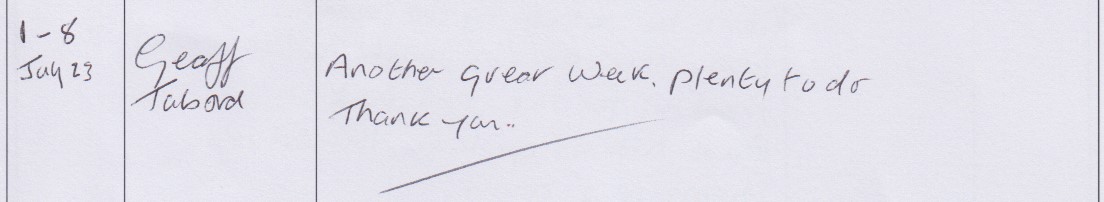 1-8
July 23
Geoff
Tabord
Another great week. plenty to do
Thank you..